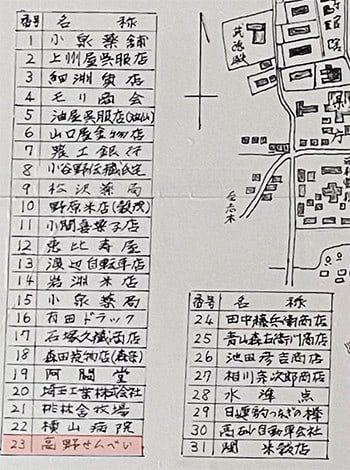 番号 名称
1 小泉薬舗
2 上州屋呉服店
3 細渕質店
4 モリ商会
5 油屋呉服店
6 山口屋金物店
7 商工銀行
8
9 松沢薬局
10 野原米店
11 小間喜菓子店
12 恵比寿屋
13 渡辺自転車店
14 岩渕米店
15 小泉薬局
16 有田ドラック
17 石塚久蔵商店
18 森田荒物店(森荒)
19 阿間堂
20 埼玉工業株式会社
21 桃林舎牧場
22 横山病院
23 高野せんべい
番号 名称
24 田中藤兵衛商店
25 青山森右衛門商店
26 池田彦吉商店
27 相川条次郎商店
28 水準点
29
30 高砂自動車会社
31 関米穀店
武徳殿
至志木